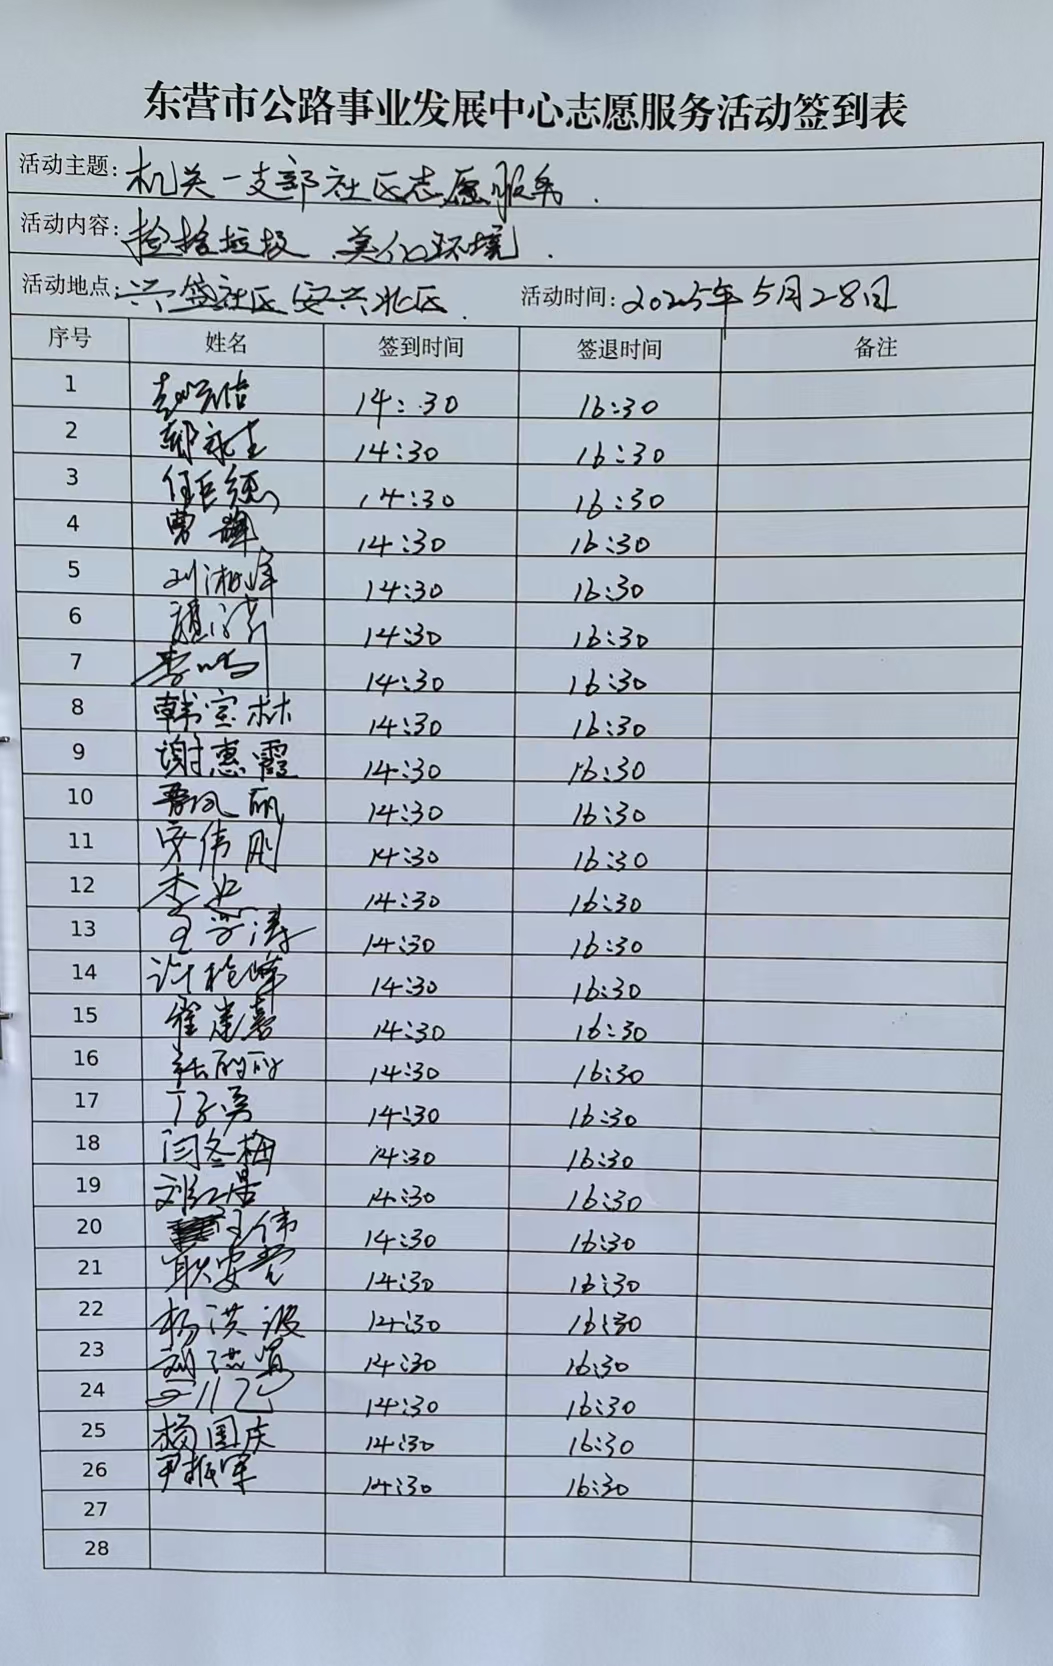 东营市公路事业发展中心志愿服务活动签到表
活动主题: 机关一支部社区志愿服务.
活动内容: 捡拾垃圾、美化环境.
活动地点: 兴盛社区安兴北区. 活动时间: 2025年5月28日
序号 姓名 签到时间 签退时间 备注
1 14:30 16:30
2 14:30 16:30
3 14:30 16:30
4 曹辉 14:30 16:30
5 刘湘峰 14:30 16:30
6 14:30 16:30
7 李鸣 14:30 16:30
8 韩宝林 14:30 16:30
9 谢惠霞 14:30 16:30
10 14:30 16:30
11 安伟刚 14:30 16:30
12 14:30 16:30
13 王学涛 14:30 16:30
14 14:30 16:30
15 崔建喜 14:30 16:30
16 14:30 16:30
17 丁子勇 14:30 16:30
18 闫冬梅 14:30 16:30
19 14:30 16:30
20 14:30 16:30
21 耿安营 14:30 16:30
22 杨洪波 14:30 16:30
23 14:30 16:30
24 14:30 16:30
25 杨国庆 14:30 16:30
26 尹振军 14:30 16:30
27
28